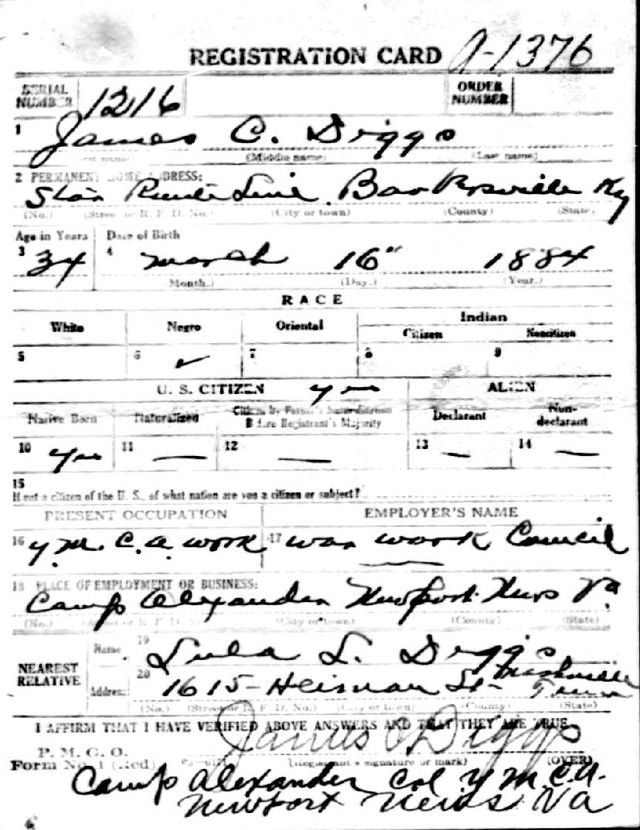 REGISTRATION CARD A-1376
SERIAL NUMBER 1216 ORDER NUMBER
1 James C. Diggs
(Middle name) (Last name)
2 PERMANENT HOME ADDRESS:
Star Route Line Ky
(No.) (Street or R. F. D. No.) (City or town) (County) (State)
Age in Years Date of Birth
3 34 4 March 16" 1884
(Month.) (Day.) (Year.)
RACE
White Negro Oriental Indian
Citizen Noncitizen
5 6 ✓ 7 8 9
U. S. CITIZEN yes ALIEN
Native Born Naturalized Citizen by Father's Naturalization Before Registrant's Majority Declarant Non-declarant
10 yes 11 — 12 — 13 — 14 —
15
If not a citizen of the U. S., of what nation are you a citizen or subject?
PRESENT OCCUPATION EMPLOYER'S NAME
16 Y.M.C.A. work 17 War Work Council
18 PLACE OF EMPLOYMENT OR BUSINESS:
Camp Alexander Newport News Va.
(No.) (Street or R. F. D. No.) (City or town) (County) (State)
NEAREST RELATIVE Name 19 Lula L. Diggs
Address 20 1615 - Heiman St - Nashville Tenn
(No.) (Street or R. F. D. No.) (City or town) (County) (State)
I AFFIRM THAT I HAVE VERIFIED ABOVE ANSWERS AND THAT THEY ARE TRUE
P. M. G. O.
James C Diggs
Form No. 1 (Red) (Registrant's signature or mark) (OVER)
Camp Alexander Col. Y.M.C.A.
Newport News Va